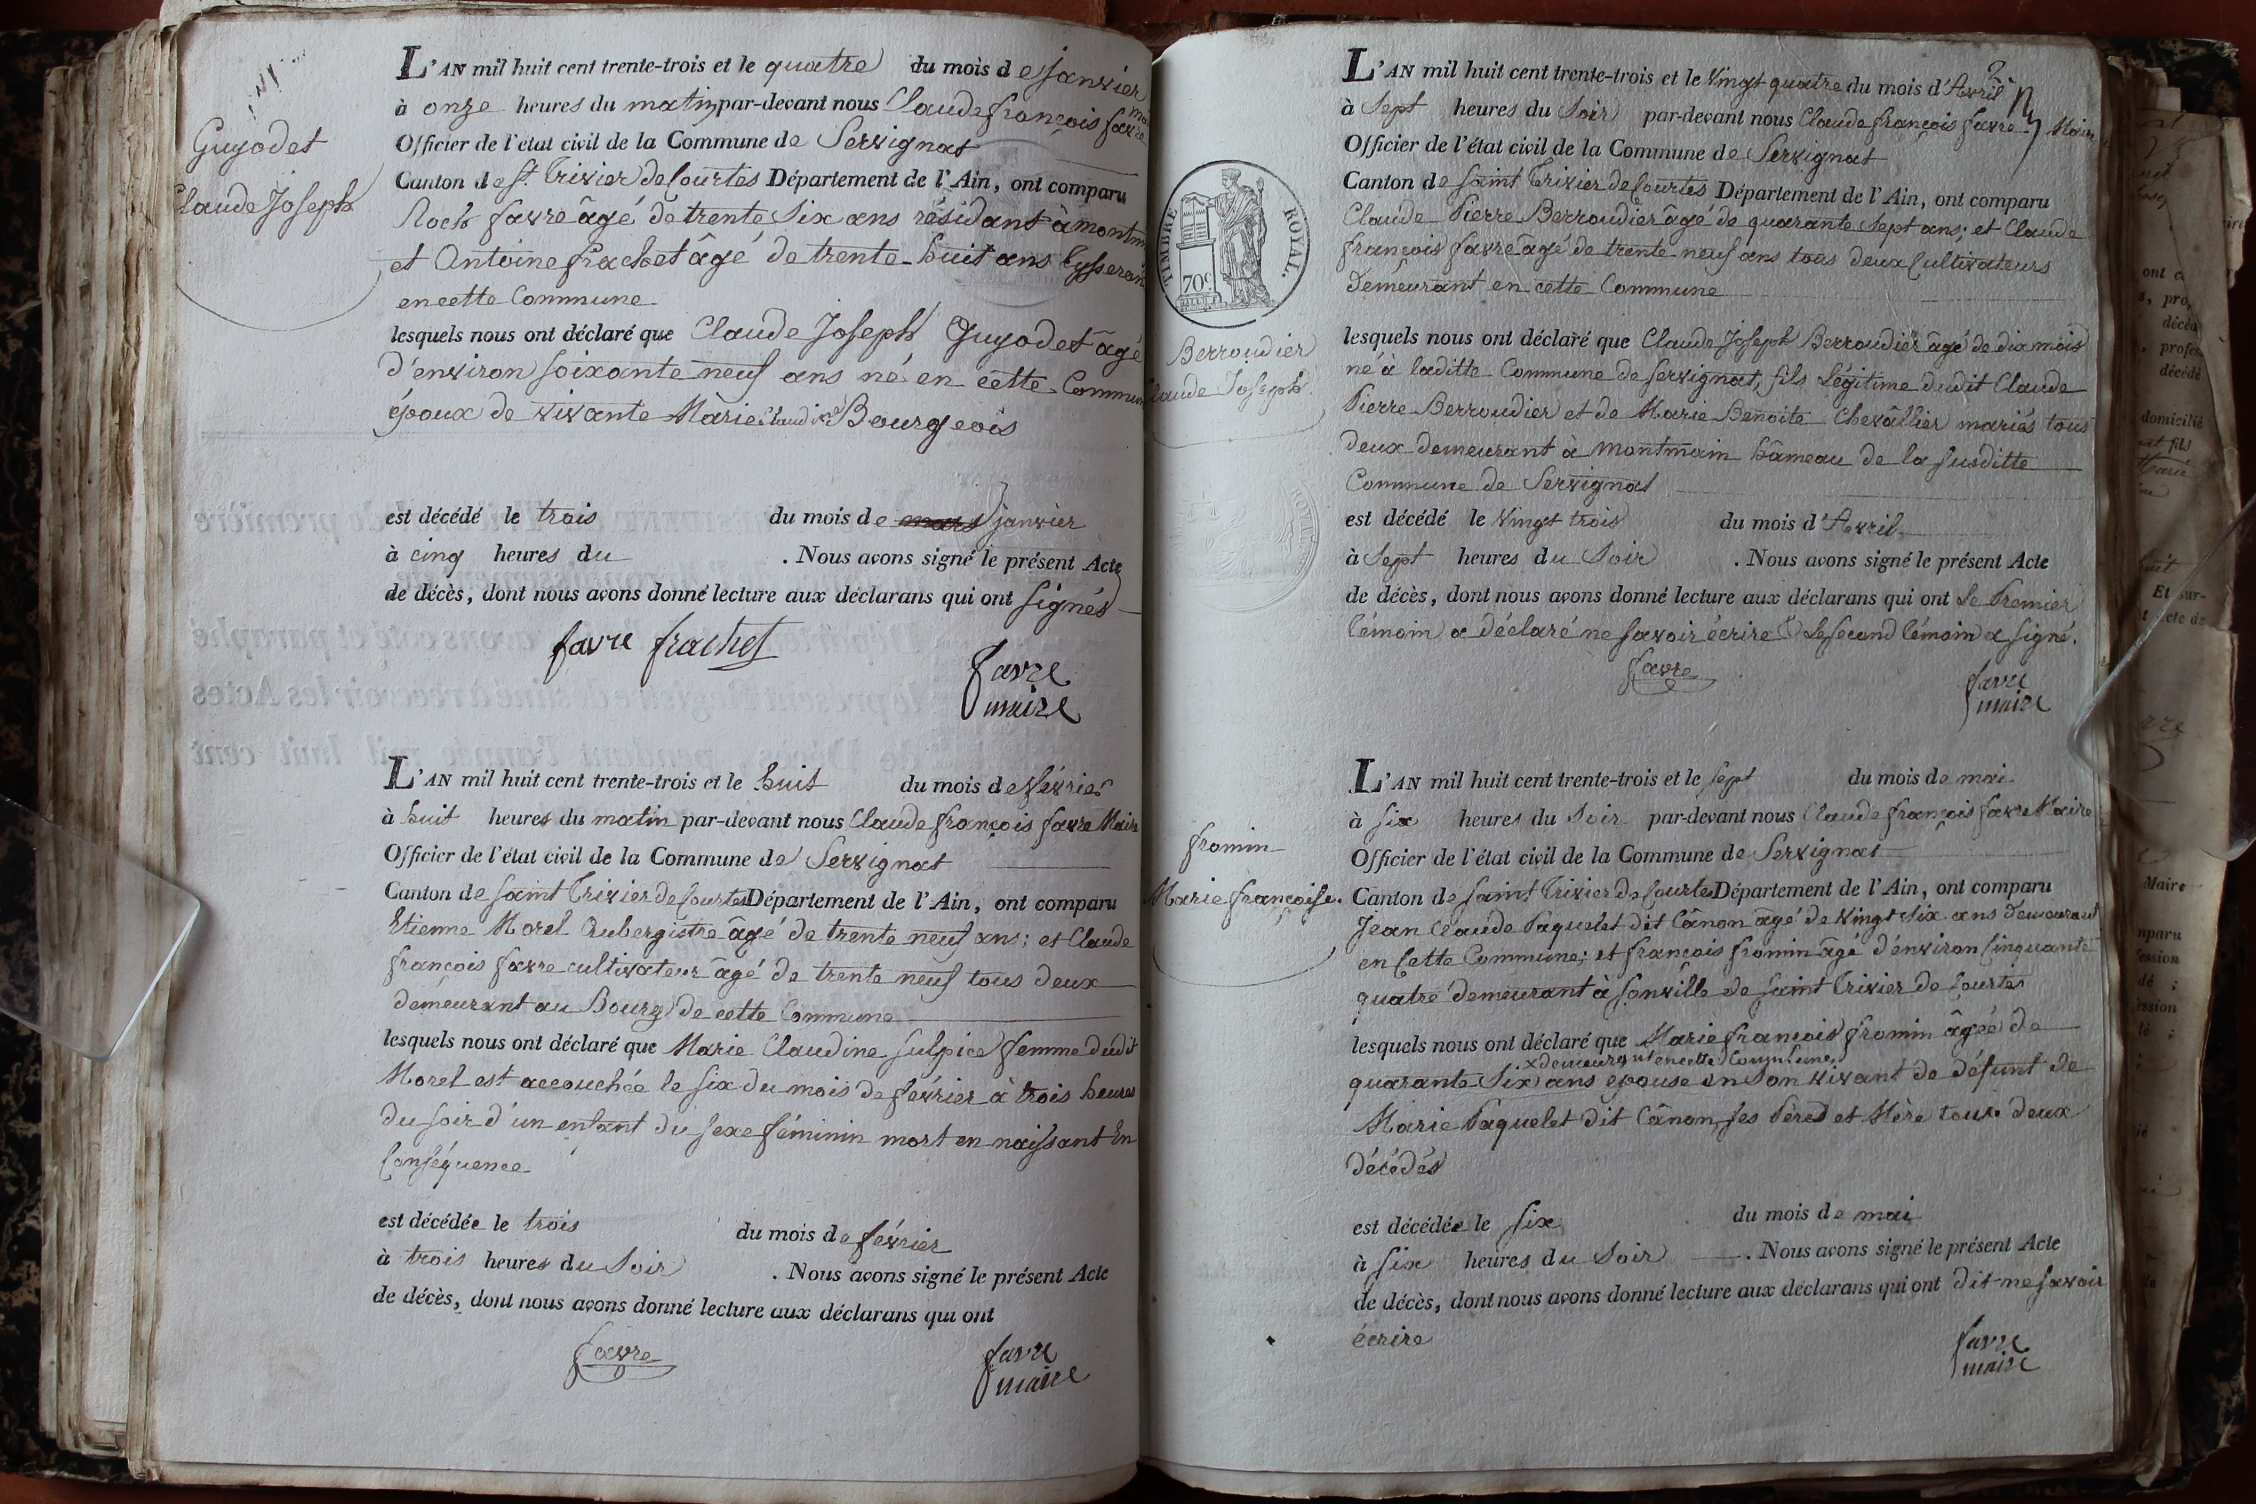 Guyodet
Claude Joseph
L'AN mil huit cent trente-trois et le quatre du mois de janvier
à onze heures du matin par-devant nous Claude françois favre
Officier de l'état civil de la Commune de Servignat
Canton de St. Trivier de Courtes Département de l'Ain, ont comparu
Roch favre âgé de trente six ans résidant à montm
et Antoine frachet âgé de trente-huit ans
en cette Commune
lesquels nous ont déclaré que Claude Joseph Guyodet âgé
d'environ soixante neuf ans né en cette Commune
époux de vivante Marie Claudine Bourgeois
est décédé le trois du mois de mars janvier
à cinq heures du . Nous avons signé le présent Acte
de décès, dont nous avons donné lecture aux déclarans qui ont signés
favre frachet
favre
maire
L'AN mil huit cent trente-trois et le huit du mois de février
à huit heures du matin par-devant nous Claude françois favre Maire
Officier de l'état civil de la Commune de Servignat
Canton de saint Trivier de Courtes Département de l'Ain, ont comparu
Etienne Morel Aubergistre âgé de trente neuf ans; et Claude
françois favre cultivateur âgé de trente neuf tous deux
demeurant au Bourg de cette Commune
lesquels nous ont déclaré que Marie Claudine Sulpice femme dudit
Morel est accouchée le six du mois de février à trois heures
du soir d'un enfant du sexe féminin mort en naissant En
Conséquence
est décédée le trois du mois de février
à trois heures du Soir . Nous avons signé le présent Acte
de décès, dont nous avons donné lecture aux déclarans qui ont
favre
favre
maire
2
TIMBRE ROYAL.
70c
Berroudier
Claude Joseph
L'AN mil huit cent trente-trois et le Vingt quatre du mois d'Avril
à Sept heures du Soir par-devant nous Claude françois favre Maire
Officier de l'état civil de la Commune de Servignat
Canton de saint Trivier de Courtes Département de l'Ain, ont comparu
Claude Pierre Berroudier âgé de quarante sept ans; et Claude
françois favre âgé de trente neuf ans tous deux Cultivateurs
Demeurant en cette Commune
lesquels nous ont déclaré que Claude Joseph Berroudier âgé de dix mois
né à laditte Commune de servignat, fils Légitime dudit Claude
Pierre Berroudier et de Marie Benoite Chevallier mariés tous
deux demeurant à montmain hâmeau de la susditte
Commune de Servignat
est décédé le Vingt trois du mois d'Avril
à Sept heures du Soir . Nous avons signé le présent Acte
de décès, dont nous avons donné lecture aux déclarans qui ont Le Premier
témoin a déclaré ne savoir écrire Le second témoin a signé.
favre
favre
maire
fromin
Marie françoise.
L'AN mil huit cent trente-trois et le sept du mois de mai
à six heures du Soir par-devant nous Claude françois favre Maire
Officier de l'état civil de la Commune de Servignat
Canton de saint Trivier de Courtes Département de l'Ain, ont comparu
Jean Claude Paquelet dit Cânon âgé de Vingt Six ans demeurant
en Cette Commune; et françois fromin âgé d'environ Cinquante
quatre demeurant à Jonville de saint Trivier de Courtes
lesquels nous ont déclaré que Marie françois fromin âgée de
x demeurant en cette Commune
quarante Six ans epouse en son vivant de défunt de
Marie Paquelet dit Cânon, ses Père et Mère tous deux
décédés
est décédée le six du mois de mai
à six heures du Soir . Nous avons signé le présent Acte
de décès, dont nous avons donné lecture aux déclarans qui ont dit ne savoir
écrire
favre
maire